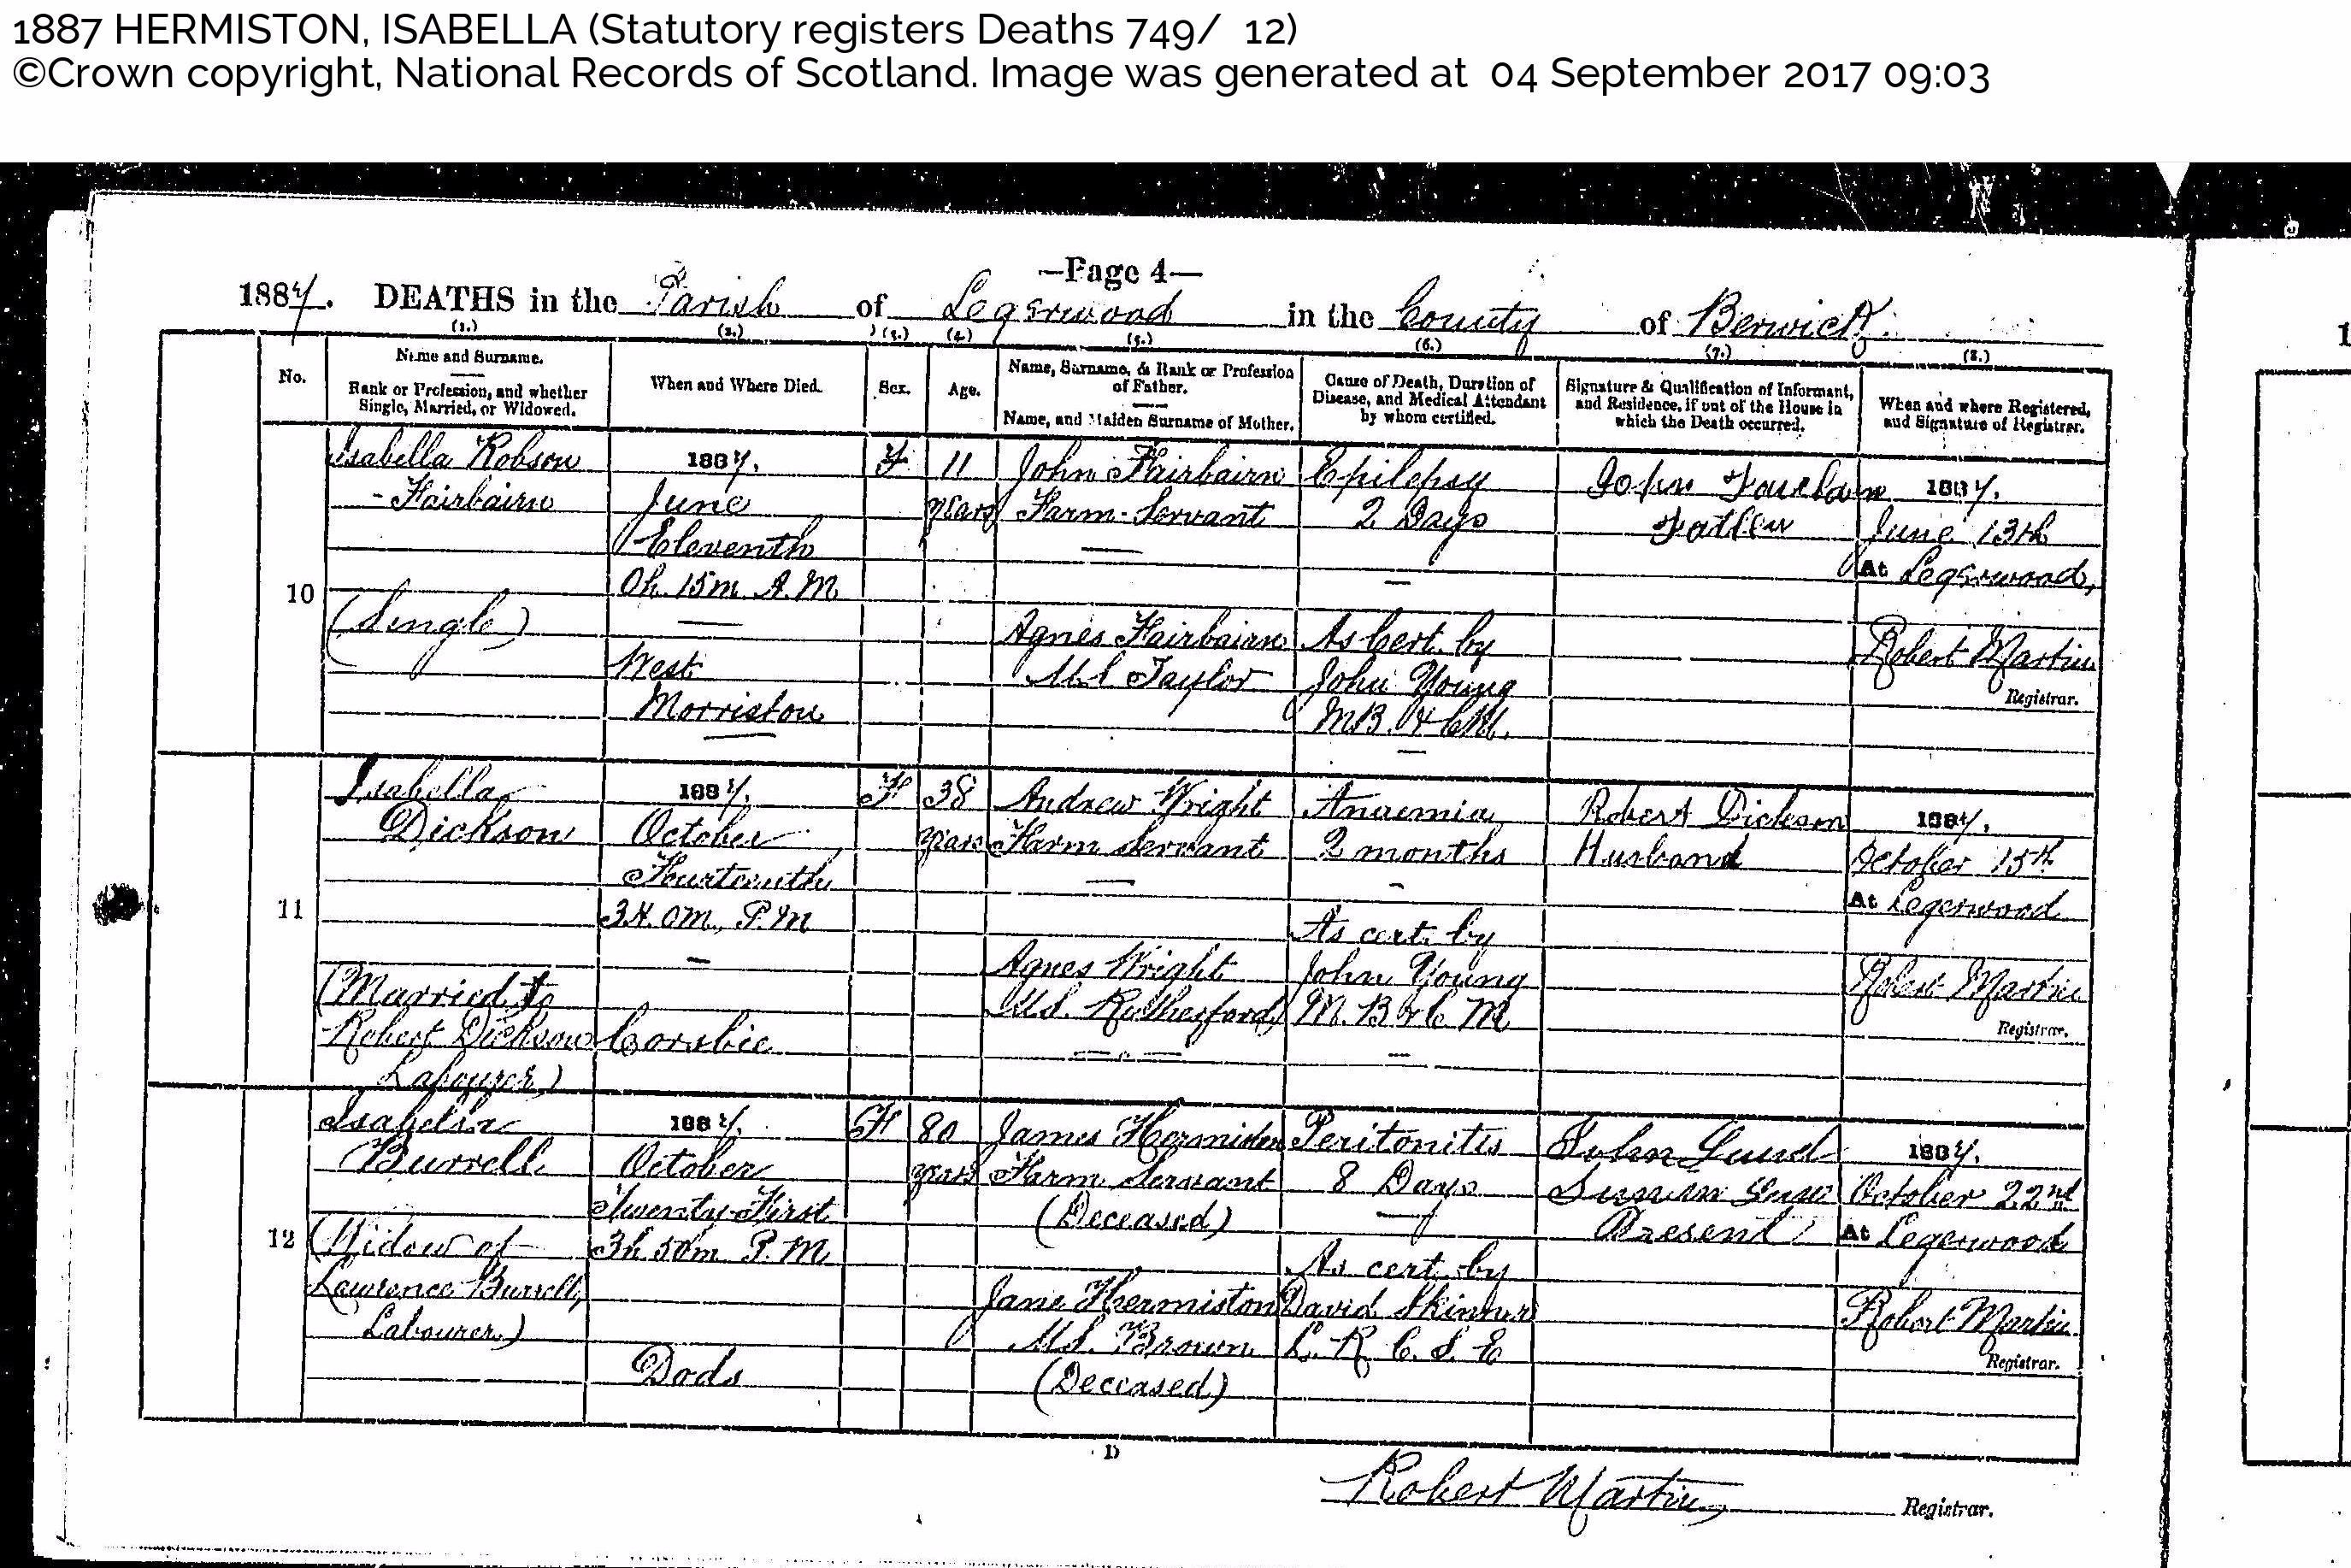 1887 HERMISTON, ISABELLA (Statutory registers Deaths 749/ 12)
©Crown copyright, National Records of Scotland. Image was generated at 04 September 2017 09:03
—Page 4—
1887. DEATHS in the Parish of Legerwood in the County of Berwick.
(1.) (2.) (3.) (4.) (5.) (6.) (7.) (8.)
No.
Name and Surname.
Rank or Profession, and whether
Single, Married, or Widowed.
When and Where Died.
Sex.
Age.
Name, Surname, & Rank or Profession
of Father.
Name, and Maiden Surname of Mother.
Cause of Death, Duration of
Disease, and Medical Attendant
by whom certified.
Signature & Qualification of Informant,
and Residence, if out of the House in
which the Death occurred.
When and where Registered,
and Signature of Registrar.
10
Isabella Robson
- Fairbairn
(Single)
1887.
June
Eleventh
0h. 15m. A.M.
West
Morriston
F
11
years
John Fairbairn
Farm-Servant
Agnes Fairbairn
M.S. Taylor
Epilepsy
2 Days
As Cert. by
John Young
M.B. & C.M.
John Fairbairn
Father
1887.
June 13th
At Legerwood,
Robert Martin
Registrar.
11
Isabella
Dickson
(Married to
Robert Dickson
Labourer)
1887.
October
Fourteenth
3H. 0m. P.M
Corsbie
F
38
years
Andrew Wright
Farm Servant
Agnes Wright
M.S. Rutherford
Anaemia
2 months
As cert. by
John Young
M.B & C M
Robert Dickson
Husband
1887.
October 15th
At Legerwood
Robert Martin
Registrar.
12
Isabella
Burrell
(Widow of
Lawrence Burrell,
Labourer)
1887.
October
Twenty-First
3h. 50m P.M
Dods
F
80
years
James Hermiston
Farm Servant
(Deceased)
Jane Hermiston
M.S. Brown
(Deceased)
Peritonitis
8 Days
As cert. by
David Skinner
L. R. C. S. E
John
Present
1887.
October 22nd
At Legerwood
Robert Martin
Registrar.
D
Robert Martin, Registrar.